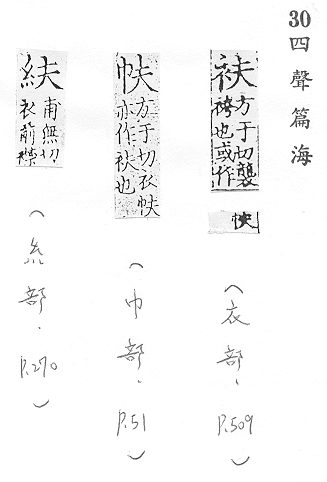 30四聲篇海
衭
方于切襲
袴也或作
(衣部、P.509)
方于切衣
亦作衭也
(巾部、P.51)
甫無切
衣前襟
(糸部、P.270)